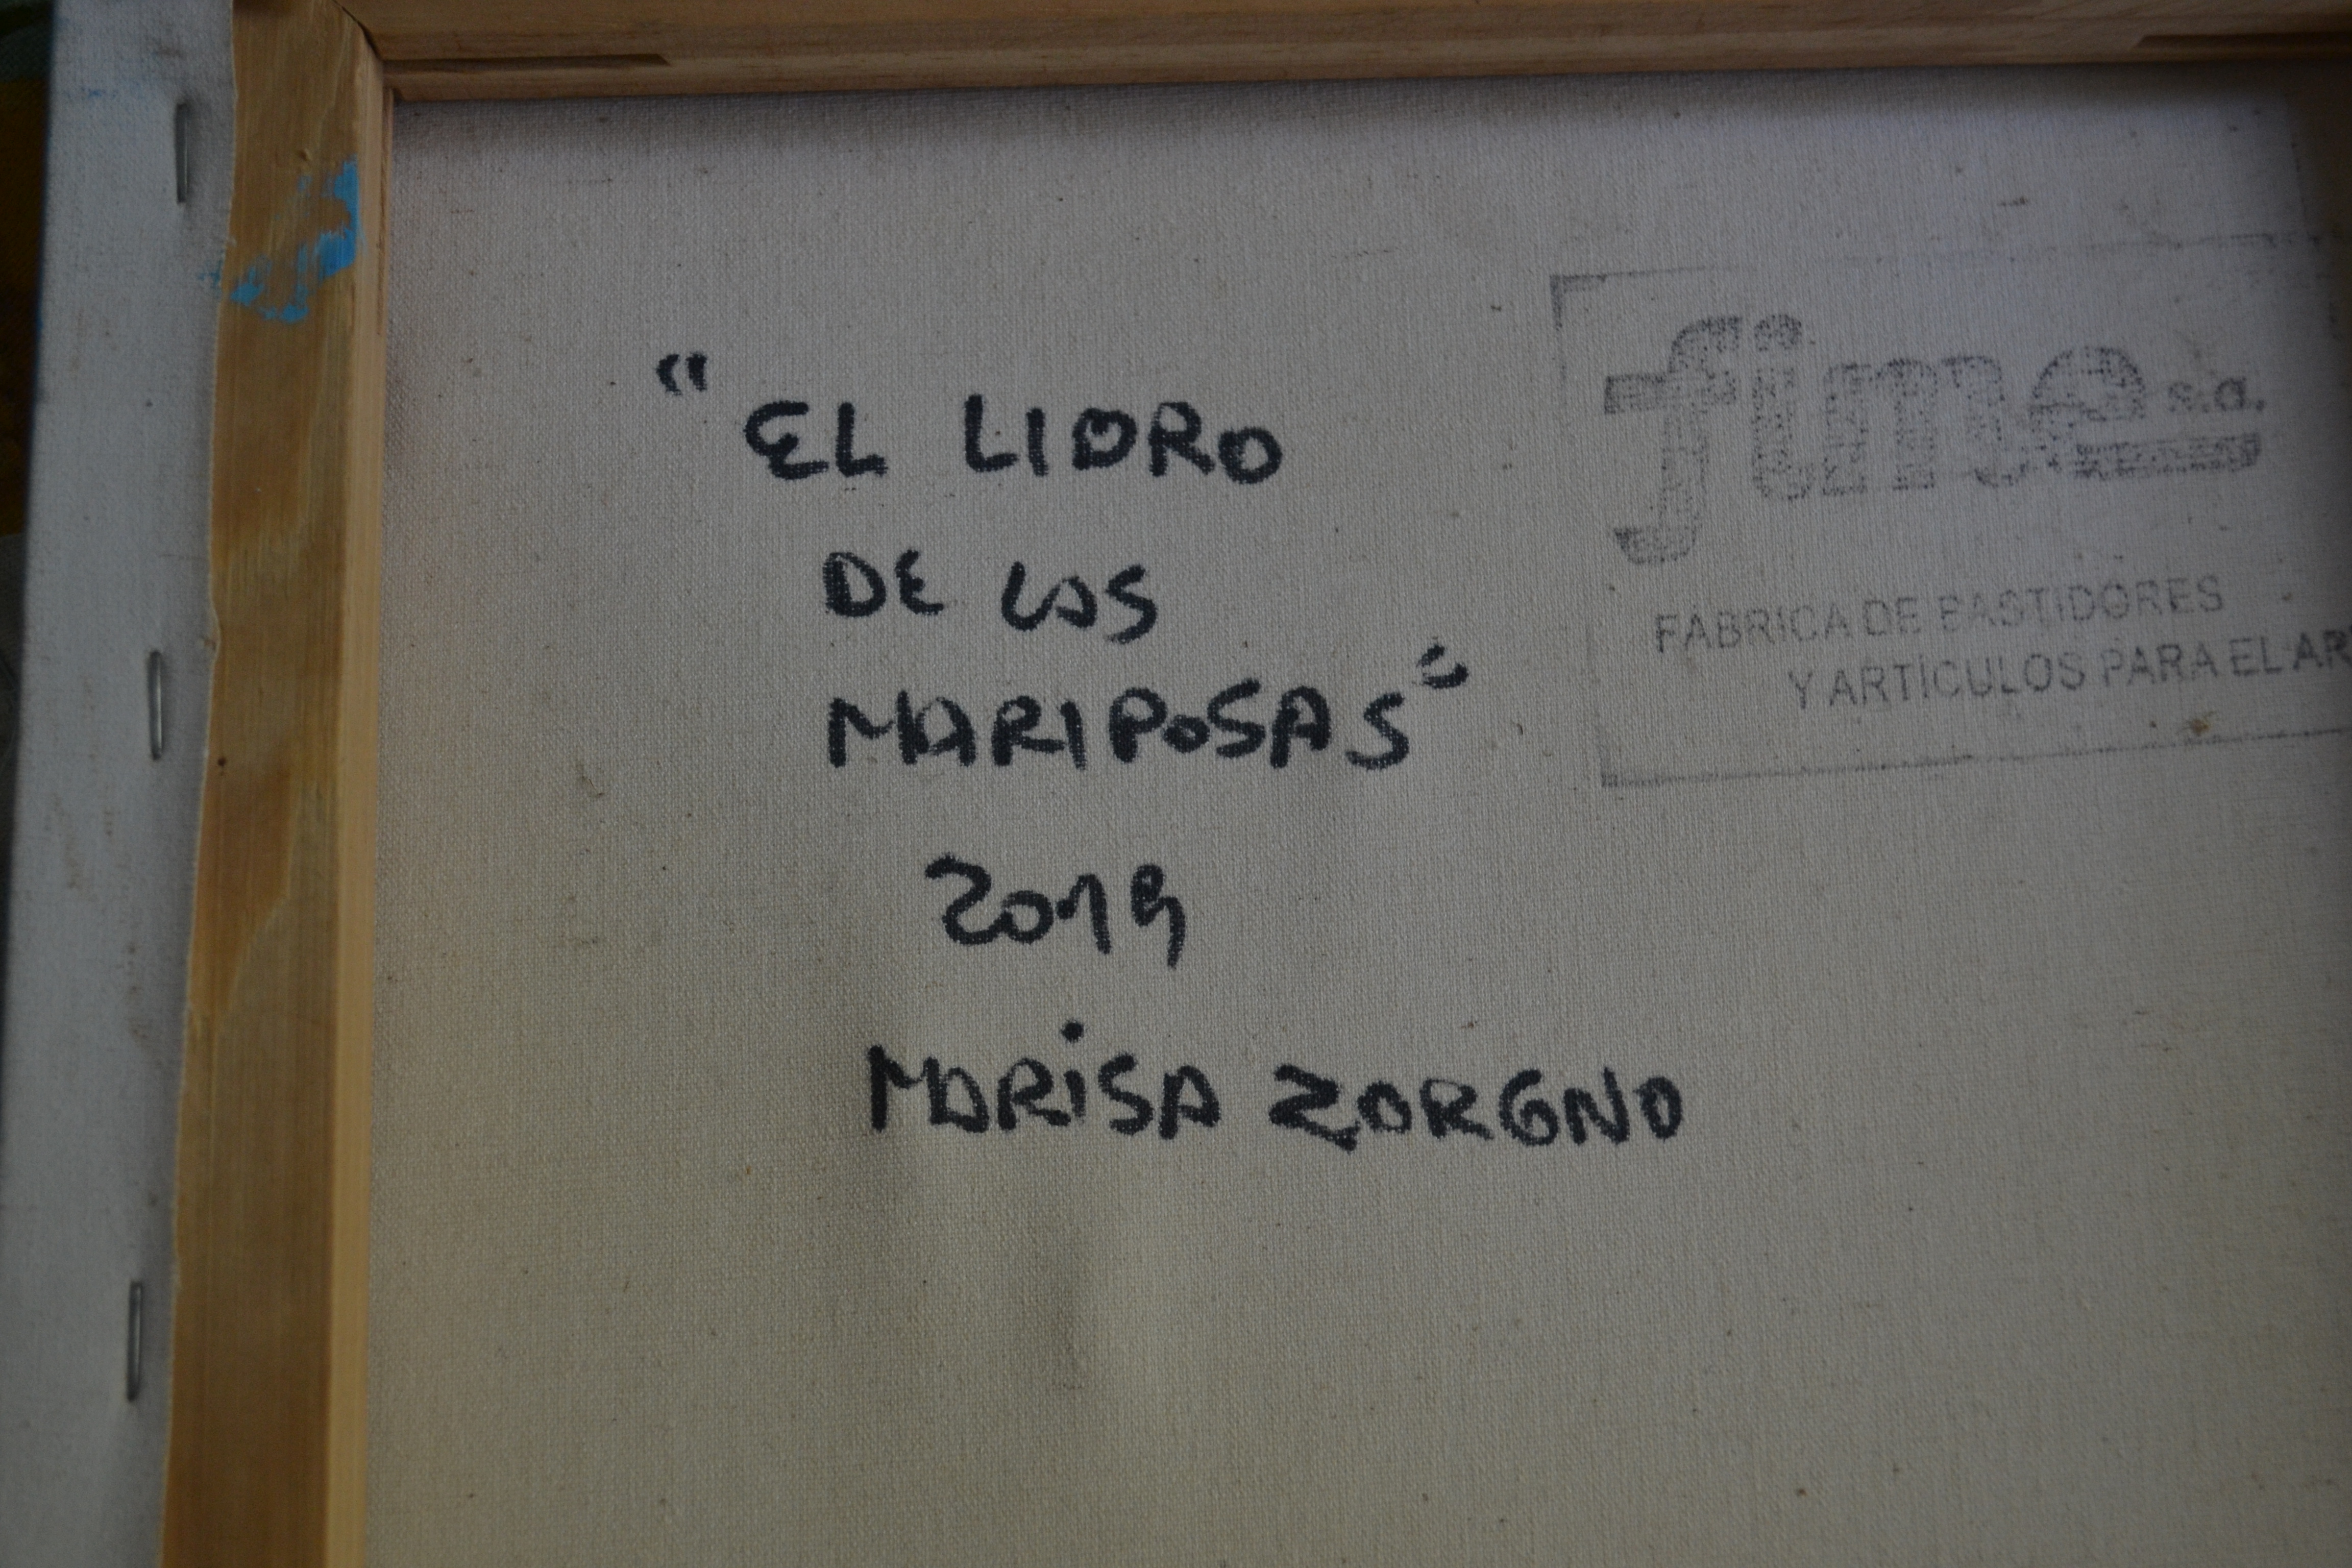 "EL LIBRO
DE LAS
MARIPOSAS"
2019
MARiSA ZORGNO
fime s.a.
FABRICA DE BASTIDORES
Y ARTÍCULOS PARA EL AR